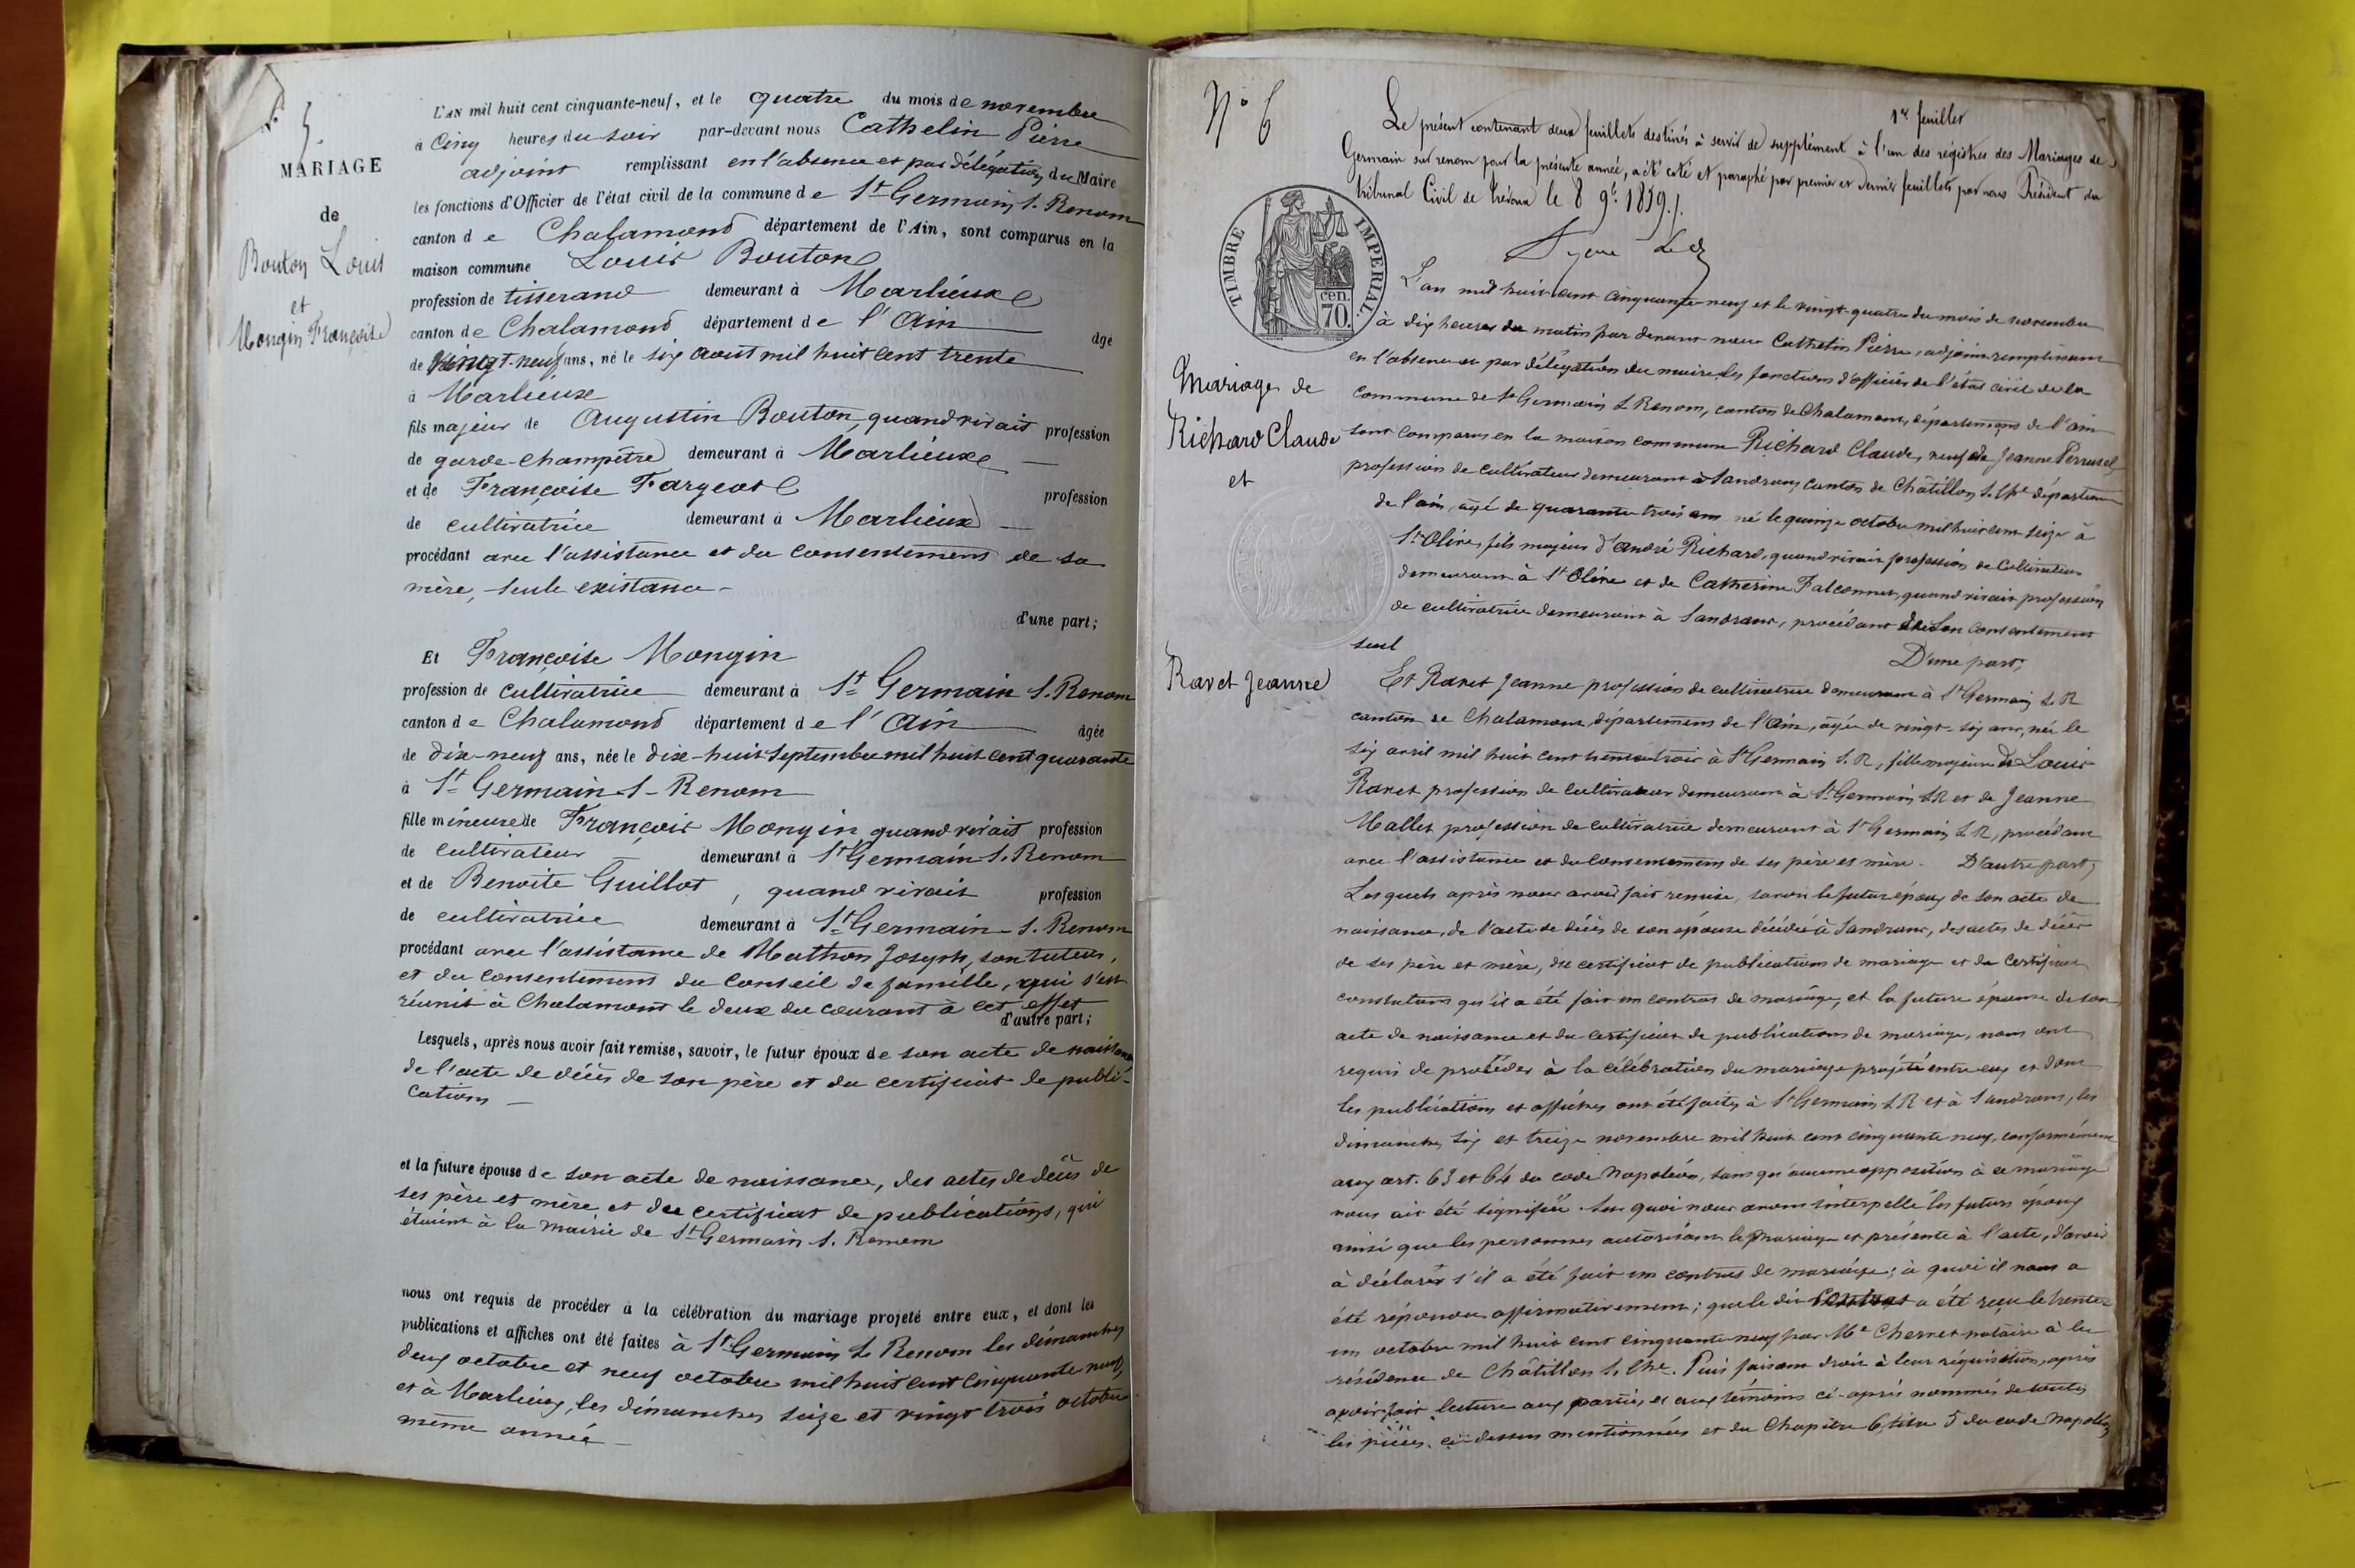 N° 5
MARIAGE
de
Bouton Louis
et
Mongin Françoise
L'AN mil huit cent cinquante-neuf, et le quatre du mois de novembre
à Cinq heures du soir par-devant nous Cathelin Pierre
adjoint remplissant en l'absence et par délégation du Maire
les fonctions d'Officier de l'état civil de la commune de St Germain s. Renom
canton de Chalamond département de l'Ain, sont comparus en la
maison commune Louis Bouton
profession de tisserand demeurant à Marlieux
canton de Chalamond département de l'Ain âgé
de vingt-neuf ans, né le six aout mil huit cent trente
à Marlieux
fils majeur de Augustin Bouton, quand vivait profession
de garde-champêtre demeurant à Marlieux
et de Françoise Fargeot profession
de cultivatrice demeurant à Marlieux
procédant avec l'assistance et du consentement de sa
mère, seule existance -
d'une part;
Et Françoise Mongin
profession de cultivatrice demeurant à St Germain s. Renom
canton de Chalamond département de l'Ain âgée
de dix-neuf ans, née le dix-huit Septembre mil huit cent quarante
à St Germain-s-Renom
fille mineure de François Mongin quand vivait profession
de cultivateur demeurant à St Germain s. Renom
et de Benoite Guillot, quand vivait profession
de cultivatrice demeurant à St Germain-s. Renom
procédant avec l'assistance de Mathon Joseph, son tuteur,
et du consentement du Conseil de famille, qui s'est
réunit à Chalamont le deux du courant à cet effet
d'autre part;
Lesquels, après nous avoir fait remise, savoir, le futur époux de son acte de naissance
de l'acte de décès de son père et du certificat de publi-
cations -
et la future épouse de son acte de naissance, des actes de décès de
ses père et mère et du certificat de publications, qui
étaient à la Mairie de St Germain s. Renom
nous ont requis de procéder à la célébration du mariage projeté entre eux, et dont les
publications et affiches ont été faites à St Germain s. Renom les dimanches
deux octobre et neuf octobre mil huit cent cinquante neuf,
et à Marlieux, les dimanches seize et vingt trois octobre
même année -
N° 6
1er feuillet
Le présent contenant deux feuillets destinés à servir de supplément à l'un des régistres des Mariages de
Germain sur renom pour la présente année, a été coté et paraphé par premier et dernier feuillets par nous Président du
tribunal Civil de Trévoux le 8 9b 1859./.
TIMBRE IMPERIAL.
cen. 70.
Mariage de
Richard Claude
et
Ravet Jeanne
L'an mil huit cent cinquante-neuf et le vingt-quatre du mois de novembre
à dix heures du matin par devant nous Cathelin Pierre, adjoint remplissant
en l'absence et par délégation du maire les fonctions d'officier de l'état civil de la
commune de St Germain s Renom, canton de Chalamont, département de l'ain
sont comparus en la maison commune Richard Claude, veuf de Jeanne Perrusel,
profession de cultivateur demeurant à Sandrans canton de Châtillon s. Che département
de l'ain, agé de quarante trois ans né le quinze octobre mil huit cent seize à
St Olive, fils majeur d'André Richard, quand vivait profession de Cultivateur
demeurant à St Olive et de Catherine Falconnet, quand vivait profession
de cultivatrice demeurant à Sandrans, procédant de son consentement
seul
D'une part;
Et Ravet Jeanne profession de cultivatrice demeurant à St Germain s. R
canton de Chalamont département de l'Ain, agée de vingt-six ans, née le
six avril mil huit cent trente trois à St Germain s. R, fille majeure de Louis
Ravet profession de Cultivateur demeurant à St Germain s R et de Jeanne
Mallet profession de Cultivatrice demeurant à St Germain s. R, procédant
avec l'assistance et du Consentement de ses père et mère. D'autre part;
Lesquels après nous avoir fait remise, savoir le futur époux de son acte de
naissance, de l'acte de décès de son épouse décédée à Sandrans, des actes de décès
de ses père et mère, du certificat de publications de mariage et du certificat
constatant qu'il a été fait un contrat de mariage, et la future épouse de son
acte de naissance et du certificat de publications de mariage, nous ont
requis de procéder à la célébration du mariage projeté entre eux et dont
les publications et affiches ont été faites à St Germain s. R et à Sandrans, les
dimanches six et treize novembre mil huit cent cinquante neuf, conformément
aux art. 63 et 64 du code Napoléon, sans qu'aucune opposition à ce mariage
nous ait été signifiée. Sur quoi nous avons interpellé les futurs époux
ainsi que les personnes autorisant le mariage et présente à l'acte, d'avoir
à déclarer s'il a été fait un contrat de mariage; à quoi il nous a
été répondu affirmativement; que le dit Contrat a été reçu le trente
un octobre mil huit cent cinquante neuf par Me Chernet notaire à la
résidence de Châtillon s. Che. Puis faisant droit à leur réquisition, après
avoir fait lecture aux parties, et aux témoins ci-après nommés de toutes
les pièces ci-dessus mentionnées et du Chapitre 6, titre 5 du code Napoléon